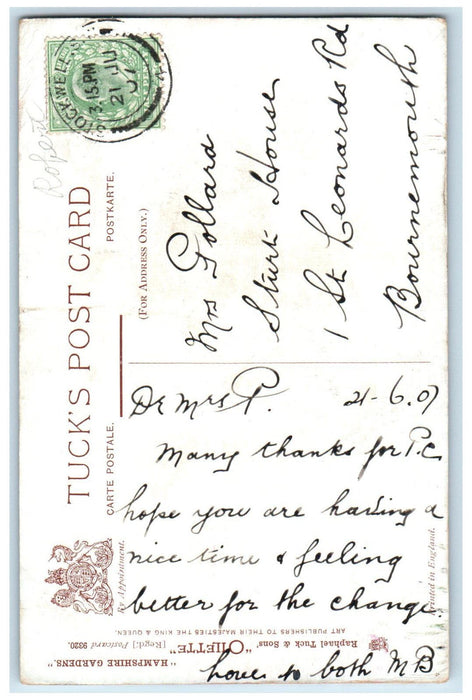 TUCK'S POST CARD
CARTE POSTALE.
POSTKARTE.
(FOR ADDRESS ONLY.)
STOCKWELL
3.15.PM
21 JU
07
Robert
Mrs Pollard
Sturt House
1 St Leonards Rd
Bournemouth
De Mrs P. 21-6.07
Many thanks for P.C
hope you are having a
nice time & feeling
better for the change
love to both MB
By Appointment.
"HAMPSHIRE GARDENS."
Raphael Tuck & Sons' "OILETTE"
[Regd.] Postcard 9320.
ART PUBLISHERS TO THEIR MAJESTIES THE KING & QUEEN.
Printed in England.